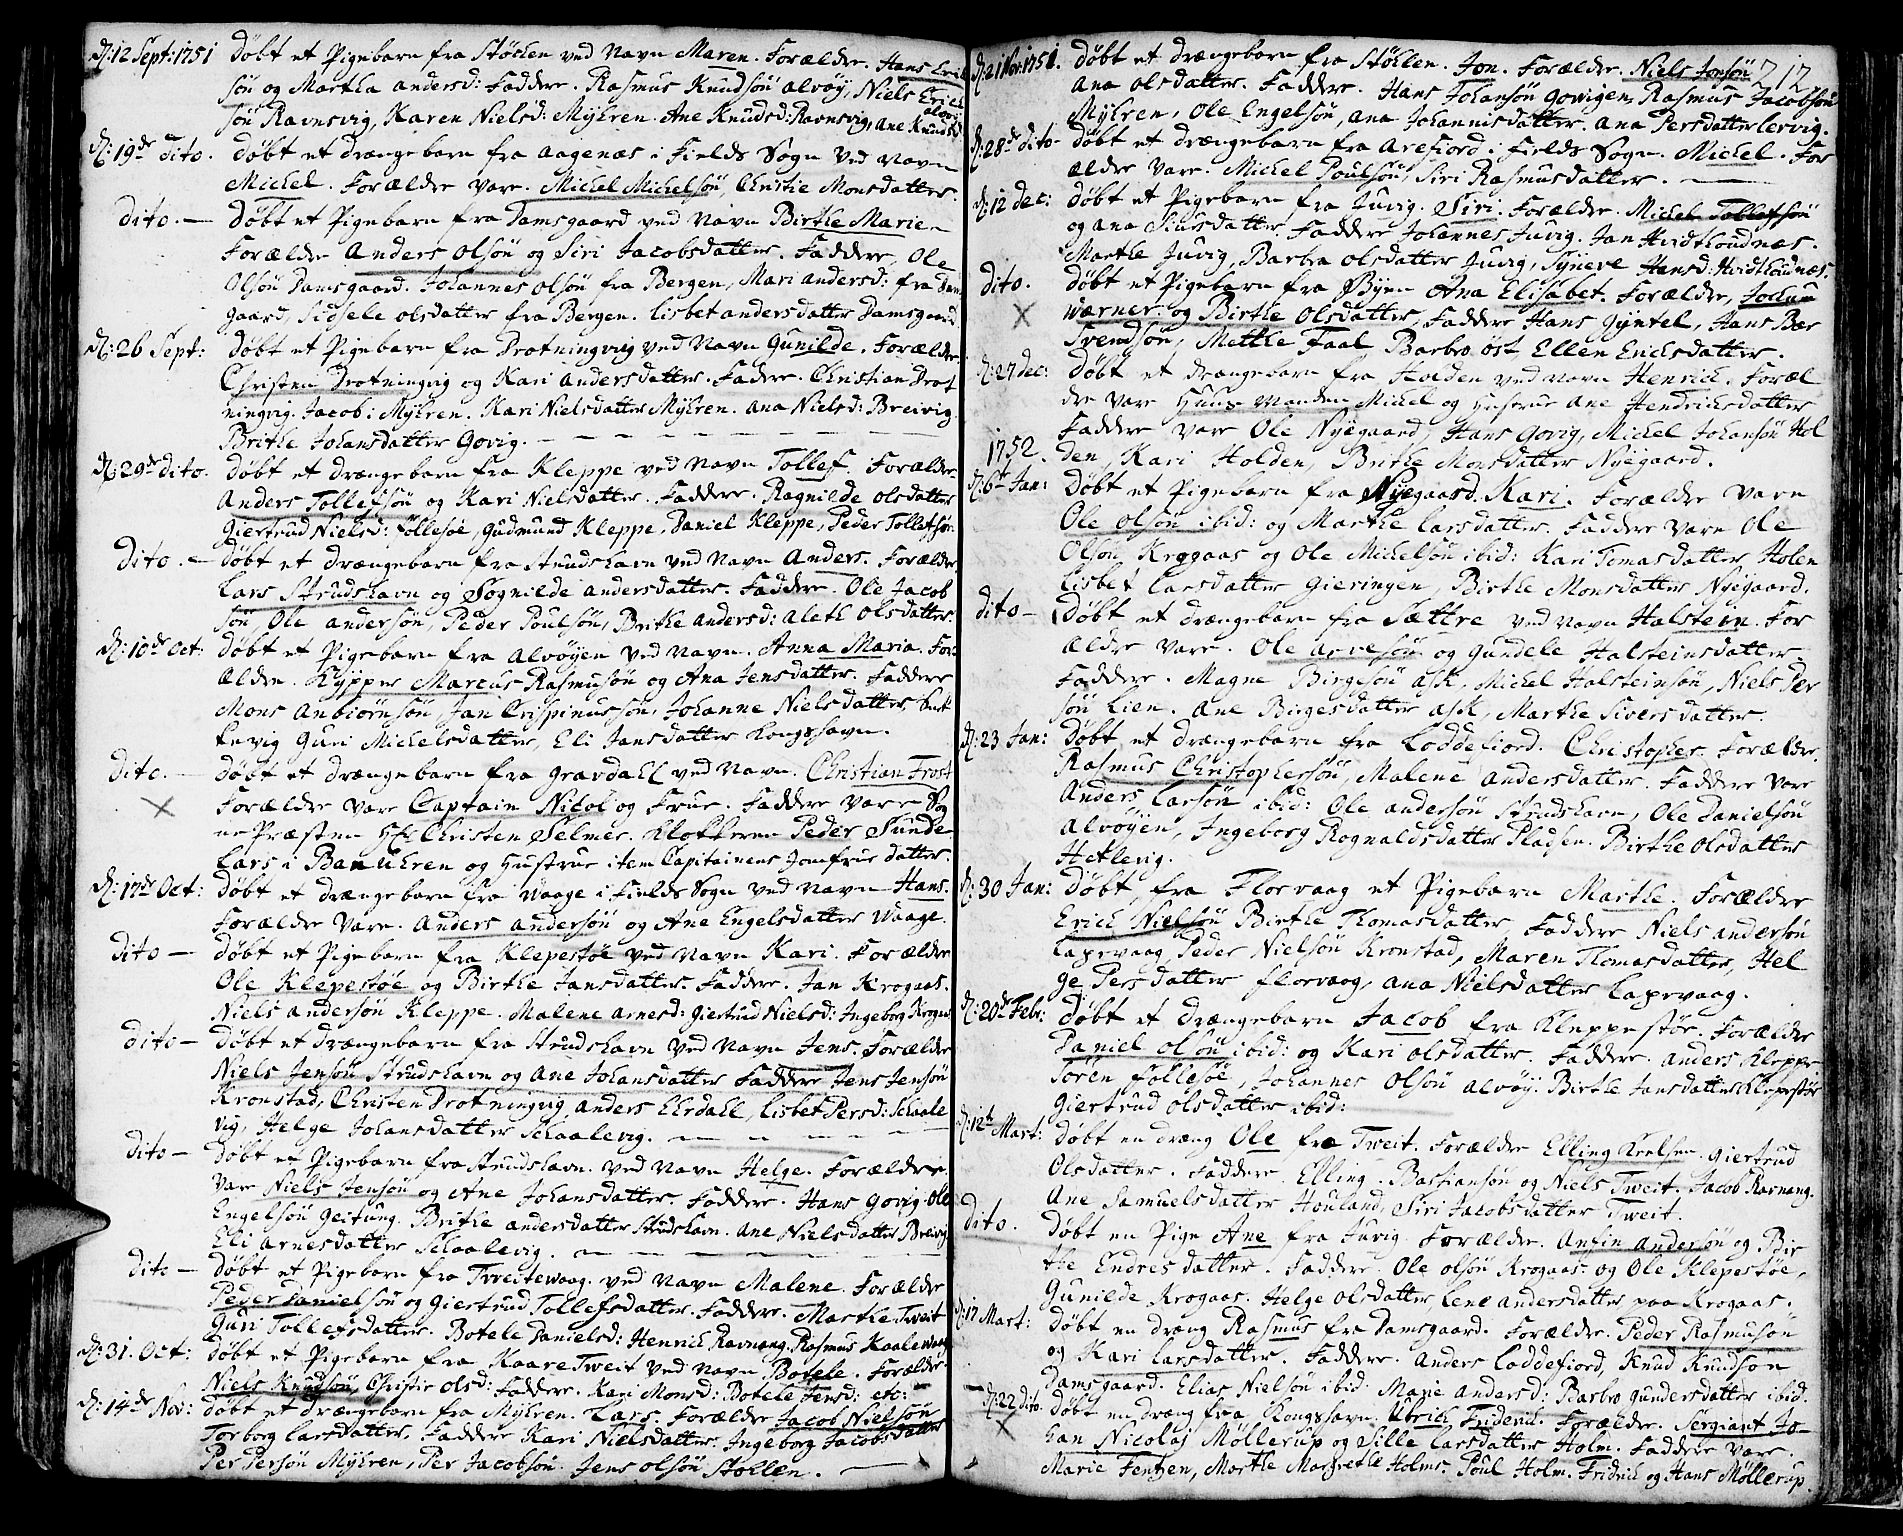 d: 12 Sept: 1751 Døbt et Pigebarn fra Støhlen ved Navn Maren. Forældre. Hans Erich
søn og Martha Andersd: Faddere. Rasmus Knudsøn Alvøy, Niels Erich
søn Ravnsvig, Karen Nielsd: Myhren. Ane Knudsd: Ravnsvig, Ane Knudsd
Alvøy
d: 19de dito. Døbt et drængebarn fra Aagenæs i Fields Sogn ved Navn
Michel. Forældre vare. Michel Michelsøn, Christie Monsdatter.
dito. — Døbt et Pigebarn fra Damsgaard ved Navn Birthe Marie.
Forældre Anders Olsøn og Siri Jacobsdatter. Faddere, Ole
Olsøn Damsgaard. Johannes Olsøn fra Bergen, Mari Andersd: fra Dam
gaard, Sidsele Olsdatter fra Bergen. Lisbet Andersdatter Damsgaard
d: 26 Sept: Døbt et Pigebarn fra Drotningvig ved Navn Gunilde. Forældre
Christen Drotningvig og Kari Andersdatter. Faddere. Christian Drot
ningvig. Jacob: Myhren. Kari Nielsdatter Myhren. Ana Nielsd: Breivig
Brithe Johansdatter Govig.
d: 29de dito. Døbt et drængebarn fra Kleppe ved Navn Tollef. Forældre
Anders Tollefsøn og Kari Nielsdatter. Faddere. Ragnilde Olsdatter
Giertrud Nielsd: Follesøe, Gudmund Kleppe, Daniel Kleppe, Peder Tollefsøn.
dito. — Døbt et drængebarn fra Strudshavn ved Navn Anders. Forældre
Lars Strudshavn og Sognilde Andersdatter. Faddere. Ole Jacob
søn, Ole Andersøn, Peder Poulsøn, Brithe Andersd: Aleth Olsdatter.
d: 10de Oct: Døbt et Pigebarn fra Alvøyen ved Navn. Anna Maria. For
ældre. Kypper Marcus Rasmusøn og Ana Jensdatter. Faddere
Mons Anbiørnsøn, Jan Crispinussøn, Johanne Nielsdatter
kevig Guri Michelsdatter, Eli Jansdatter Kongshavn.
dito. — Døbt et drængebarn fra Gravdahl ved Navn. Christian Frost
Forældre vare Captain Nicol og Frue. Faddere vare Sog
ne Præsten Hr Christen Selmer. Klokkeren Peder Sunde
Lars i Banchren og Hustrue item Capitainens Jomfrue datter.
d: 17de Oct: Døbt et drængebarn fra Waage i Fields Sogn ved Navn Hans.
Forældre vare. Anders Andersøn og Ane Engelsdatter Waage.
dito — Døbt et Pigebarn fra Klepestøe ved Navn Kari. Forældre
Ole Klepestøe og Birthe Jansdatter. Faddere. Jan Krogaas.
Niels Andersøn Kleppe. Malene Arnesd: Giertrud Nielsd: Ingeborg Krogaas
dito — Døbt et drængebarn fra Strudshavn ved Navn Jens. Forældre
Niels Jensøn Strudshavn og Ane Johansdatter Faddere Jens Jensøn
Kronstad, Christen Drotningvig, Anders Ekrdahl, Lisbet Persd: Schaale
vig, Helge Johansdatter Schaalevig.
dito — Døbt et Pigebarn fra Strudshavn. ved Navn Helge. Forældre
vare Niels Jensøn og Ane Johansdatter. Faddere. Hans Govig. Ole
Engelsøn Geitung. Brithe Andersdatter Strudshavn. Ane Nielsdatter Breivig
Eli Arnesdatter Schaalevig.
dito — Døbt et Pigebarn fra Tveitewaag. ved Navn Malene. Forældre
Peder Danielsøn og Giertrud Tollefsdatter. Faddere. Marthe Tweit
Guri Tollefsdatter. Botele Danielsd: Henrich Ravnang. Rasmus Kaalewaag
d: 31. Oct: Døbt et Pigebarn fra Kaare Tweit ved Navn Botele. Forældre
Niels Knudsøn, Christie Olsd: Faddere. Kari Monsd: Botele Jensd: etc:
d: 14de Nov: Døbt et drængebarn fra Myhren. Lars. Forældre Jacob Nielsøn
Torborg Larsdatter, Faddere Kari Nielsdatter. Ingeborg Jacobsdatter
Per Persøn Myhren, Per Jacobsøn. Jens Olsøn Støhlen.
212
d: 21 Nov: 1751. Døbt et drængebarn fra Støhlen. Jon. Forældre. Niels Jonsøn
Ana Olsdatter. Faddere. Hans Johansøn Govigen, Rasmus Jacobsøn
Myhren, Ole Engelsøn, Ana Johannisdatter. Ana Persdatter Lervig.
d: 28de dito Døbt et drængebarn fra Arefiord i Fields Sogn. Michel. For
ældre vare. Michel Poulsøn, Siri Rasmusdatter.
d: 12 Dec: Døbt et Pigebarn fra Juvig. Siri. Forældre. Michel Tollefsøn
og Ana Siursdatter. Faddere Johannes Juvig. Jan Hvidthoudnæs.
Marthe Juvig, Barbra Olsdatter Juvig, Syneve Hansd: Hvidthoudnæs.
dito. Døbt et Pigebarn fra Byen Ana Elisabet. Forældre, Johan
Wærner og Birthe Olsdatter, Faddere Hans Gyntel, Hans Bær
Svendsøn, Metthe Faal Barbro Øst Ellen Erichsdatter.
d: 27 dec: Døbt et drængebarn fra Holden ved Navn Henrich. Foræl
dre vare Huus Manden Michel og Hustrue Ane Hendrichsdatter
Faddere vare Ole Nyegaard, Hans Govig, Michel Johansøn Hol
1752. den, Kari Holden, Brithe Monsdatter Nyegaard.
d: 6te Jan: Døbt et Pigebarn fra Nyegaard. Kari. Forældre vare
Ole Olsøn ibid: og Marthe Larsdatter. Faddere vare Ole
Olsøn Krogaas og Ole Michelsøn ibid: Kari Tomasdatter Holen
Lisbet Larsdatter Gieringen, Birthe Monsdatter Nyegaard.
dito — Døbt et drængebarn fra Sættre ved Navn Halstein. For
ældre vare. Ole Arnesøn og Gundele Halsteinsdatter
Faddere. Magne Birgesøn Ask, Michel Halsteinsøn, Niels Per
søn Lien. Ane Birgesdatter Ask, Marthe Siversdatter.
d: 23 Jan: Døbt et drængebarn fra Loddefiord. Christopher. Forældre.
Rasmus Christophersøn, Malene Andersdatter. Faddere vare
Anders Larsøn ibid: Ole Andersøn Strudshavn, Ole Danielsøn
Alvøyen, Ingeborg Rognaldsdatter Pladsen. Birthe Olsdatter
Hetlevig.
d: 30 Jan: Døbt, fra Florvaag et Pigebarn Marthe. Forældre
Erich Nielsøn Birthe Thomasdatter, Faddere Niels Andersøn
Laxevaag, Peder Nielsøn Kronstad, Maren Thomasdatter, Hel
ge Persdatter Florvaag, Ana Nielsdatter Laxevaag.
d: 20de Febr: Døbt et drængebarn Jacob fra Kleppestøe. Forældre
Daniel Olsøn ibid: og Kari Olsdatter. Faddere. Anders Kleppe.
Søren Follesøe, Johannes Olsøn Alvøy. Birthe Jansdatter Klepestøe
Giertrud Olsdatter ibid:
d: 12te Mart: Døbt en dræng Ole fra Tweit. Forældre Elling Keelsen. Giertrud
Olsdatter. Faddere. Elling. Bastiansøn og Niels Tweit. Jacob Ravnang.
Ane Samuelsdatter Houland, Siri Jacobsdatter Tweit.
dito. Døbt en Pige Ane fra Juvig. Forældre. Anfin Andersøn og Bir
the Endresdatter. Faddere. Ole Olsøn Krogaas. og Ole Klepestøe,
Gunilde Krogaas. Helge Olsdatter, Lene Andersdatter paa Krogaas.
d: 17 Mart: Døbt en dræng Rasmus fra Damsgaard. Forældre. Peder Rasmusøn
og Kari Larsdatter. Faddere. Anders Loddefiord, Knud Knudsøn
Damsgaard. Elias Nielsøn ibid: Mane Andersd: Barbro Gundersdatter ibid.
d: 22 dito. Døbt en dræng fra Kongshavn. Ulrich Friderich. Forældre. Sergiant Jo-
han Nicolaj Møllerup og Sille Larsdatter Holm. Faddere vare.
Marie Jentzen, Marthe Margrethe Holms. Poul Holm. Fridrich og Hans Møllerup.